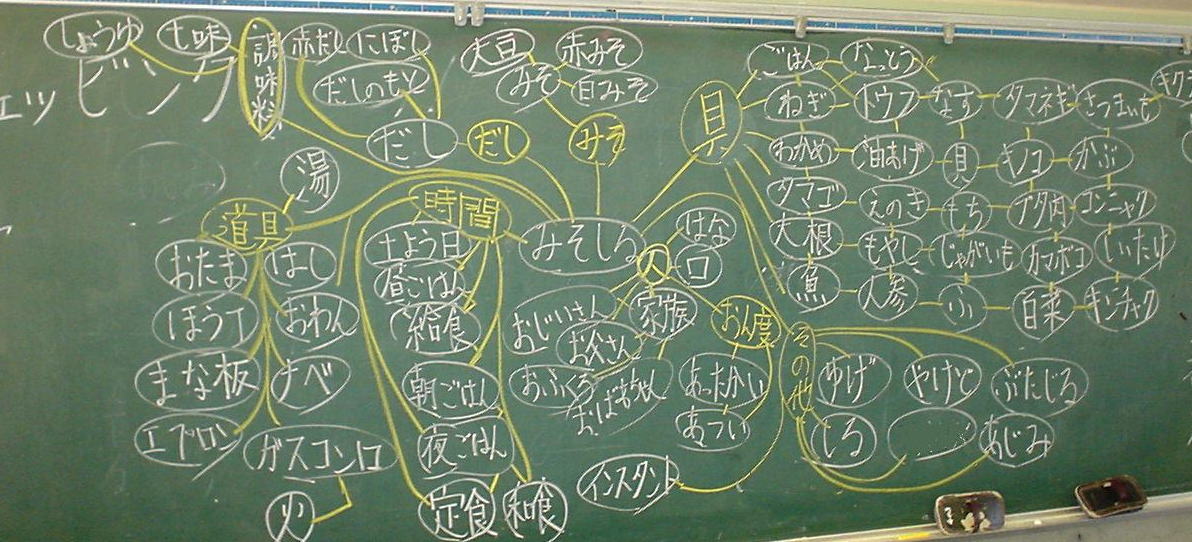 ェッピング
しょうゆ
七味
調味料
赤だし
にぼし
だしのもと
だし
だし
大豆
赤みそ
みそ
白みそ
みそ
具
ごはん
なっとう
ねぎ
トウフ
なす
タマネギ
さつまいも
キクラ
わかめ
油あげ
貝
キノコ
かぶ
タマゴ
えのき
もち
ブタ肉
コンニャク
大根
もやし
じゃがいも
カマボコ
しいたけ
魚
人参
ふ
白菜
キンチャク
湯
道具
おたま
はし
ほう丁
おわん
まな板
ナベ
エプロン
ガスコンロ
火
時間
土よう日
昼ごはん
給食
朝ごはん
夜ごはん
定食
和食
みそしる
人
はな
口
おじいさん
家族
お父さん
おふくろ
おばあちゃん
おん度
あったかい
あつい
インスタント
その他
ゆげ
やけど
ぶたじる
しる
あじみ